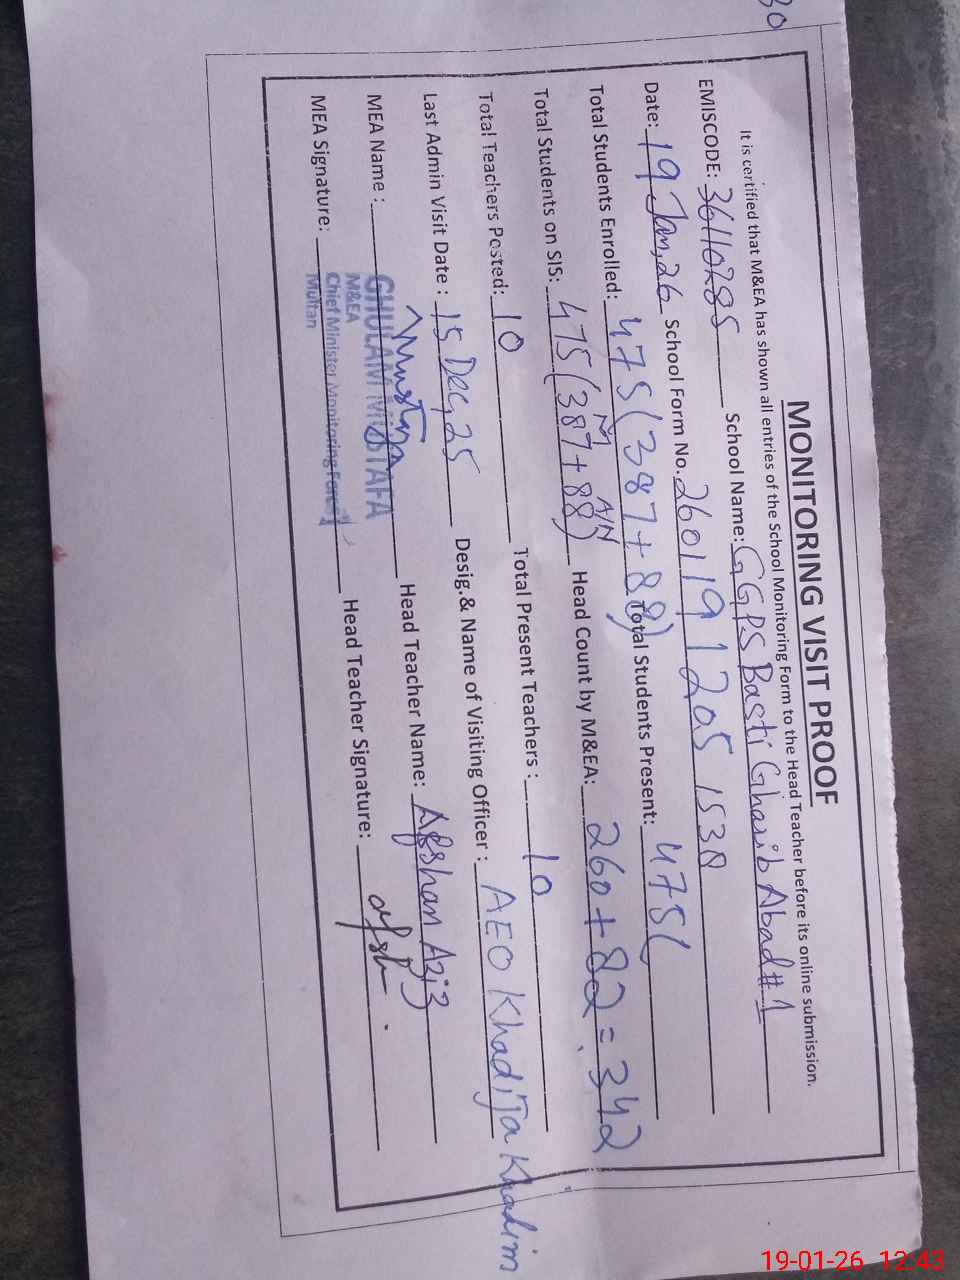 30
MONITORING VISIT PROOF
It is certified that M&EA has shown all entries of the School Monitoring Form to the Head Teacher before its online submission.
EMISCODE: 36110285 School Name: GGPS Basti Gharib Abad #1
Date: 19 Jan, 26 School Form No. 260119 1205 1530
Total Students Enrolled: 475 (387+88) Total Students Present: 475 (
M A/N
Total Students on SIS: 475 (387+88) Head Count by M&EA: 260+82=342
Total Teachers Posted: 10 Total Present Teachers: 10
Last Admin Visit Date: 15 Dec, 25 Desig.& Name of Visiting Officer: AEO Khadija Khadim
MEA Name: GHULAM MUSTAFA Head Teacher Name: Afshan Aziz
M&EA
MEA Signature: Head Teacher Signature:
Chief Minister Monitoring Force
Multan
19-01-26 12:43